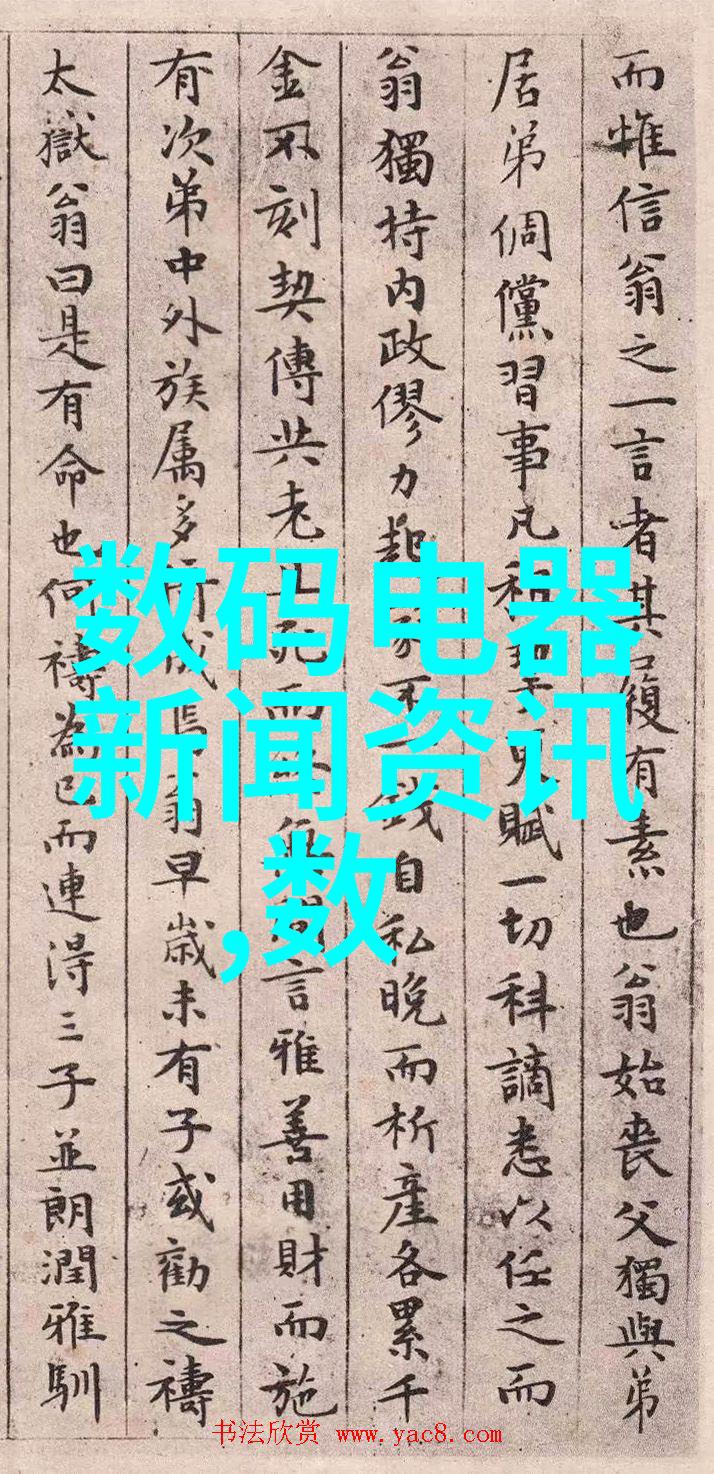 而惟信翁之一言者其履有素也翁始喪父獨與弟
居弟倜儻習事凡賦一切科謫悉以任之而
翁獨持内政僇力起不錢自私晚而析產各累千
金不刻契傳共老死而言雅善用財而施
有次弟中外族属多翁早歳未有子或勸之禱
太嶽翁曰是有命也何禱為已而連得三子並朗潤雅馴
数码电器
新闻资讯
,数
书法欣赏 www.yac8.com